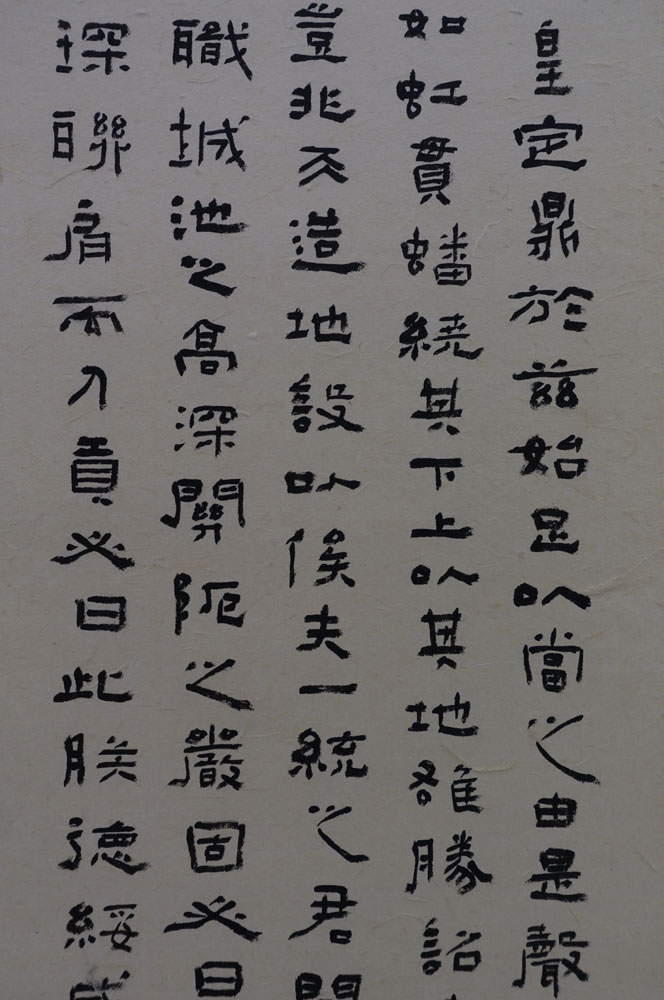 皇定鼎於茲始足以當之由是聲
如虹貫蟠繞其下上以其地雄勝詔
豈非天造地設以俟夫一統之君
職城池之高深關阨之嚴固必曰
琛聯肩而入貢必曰此朕德綏威